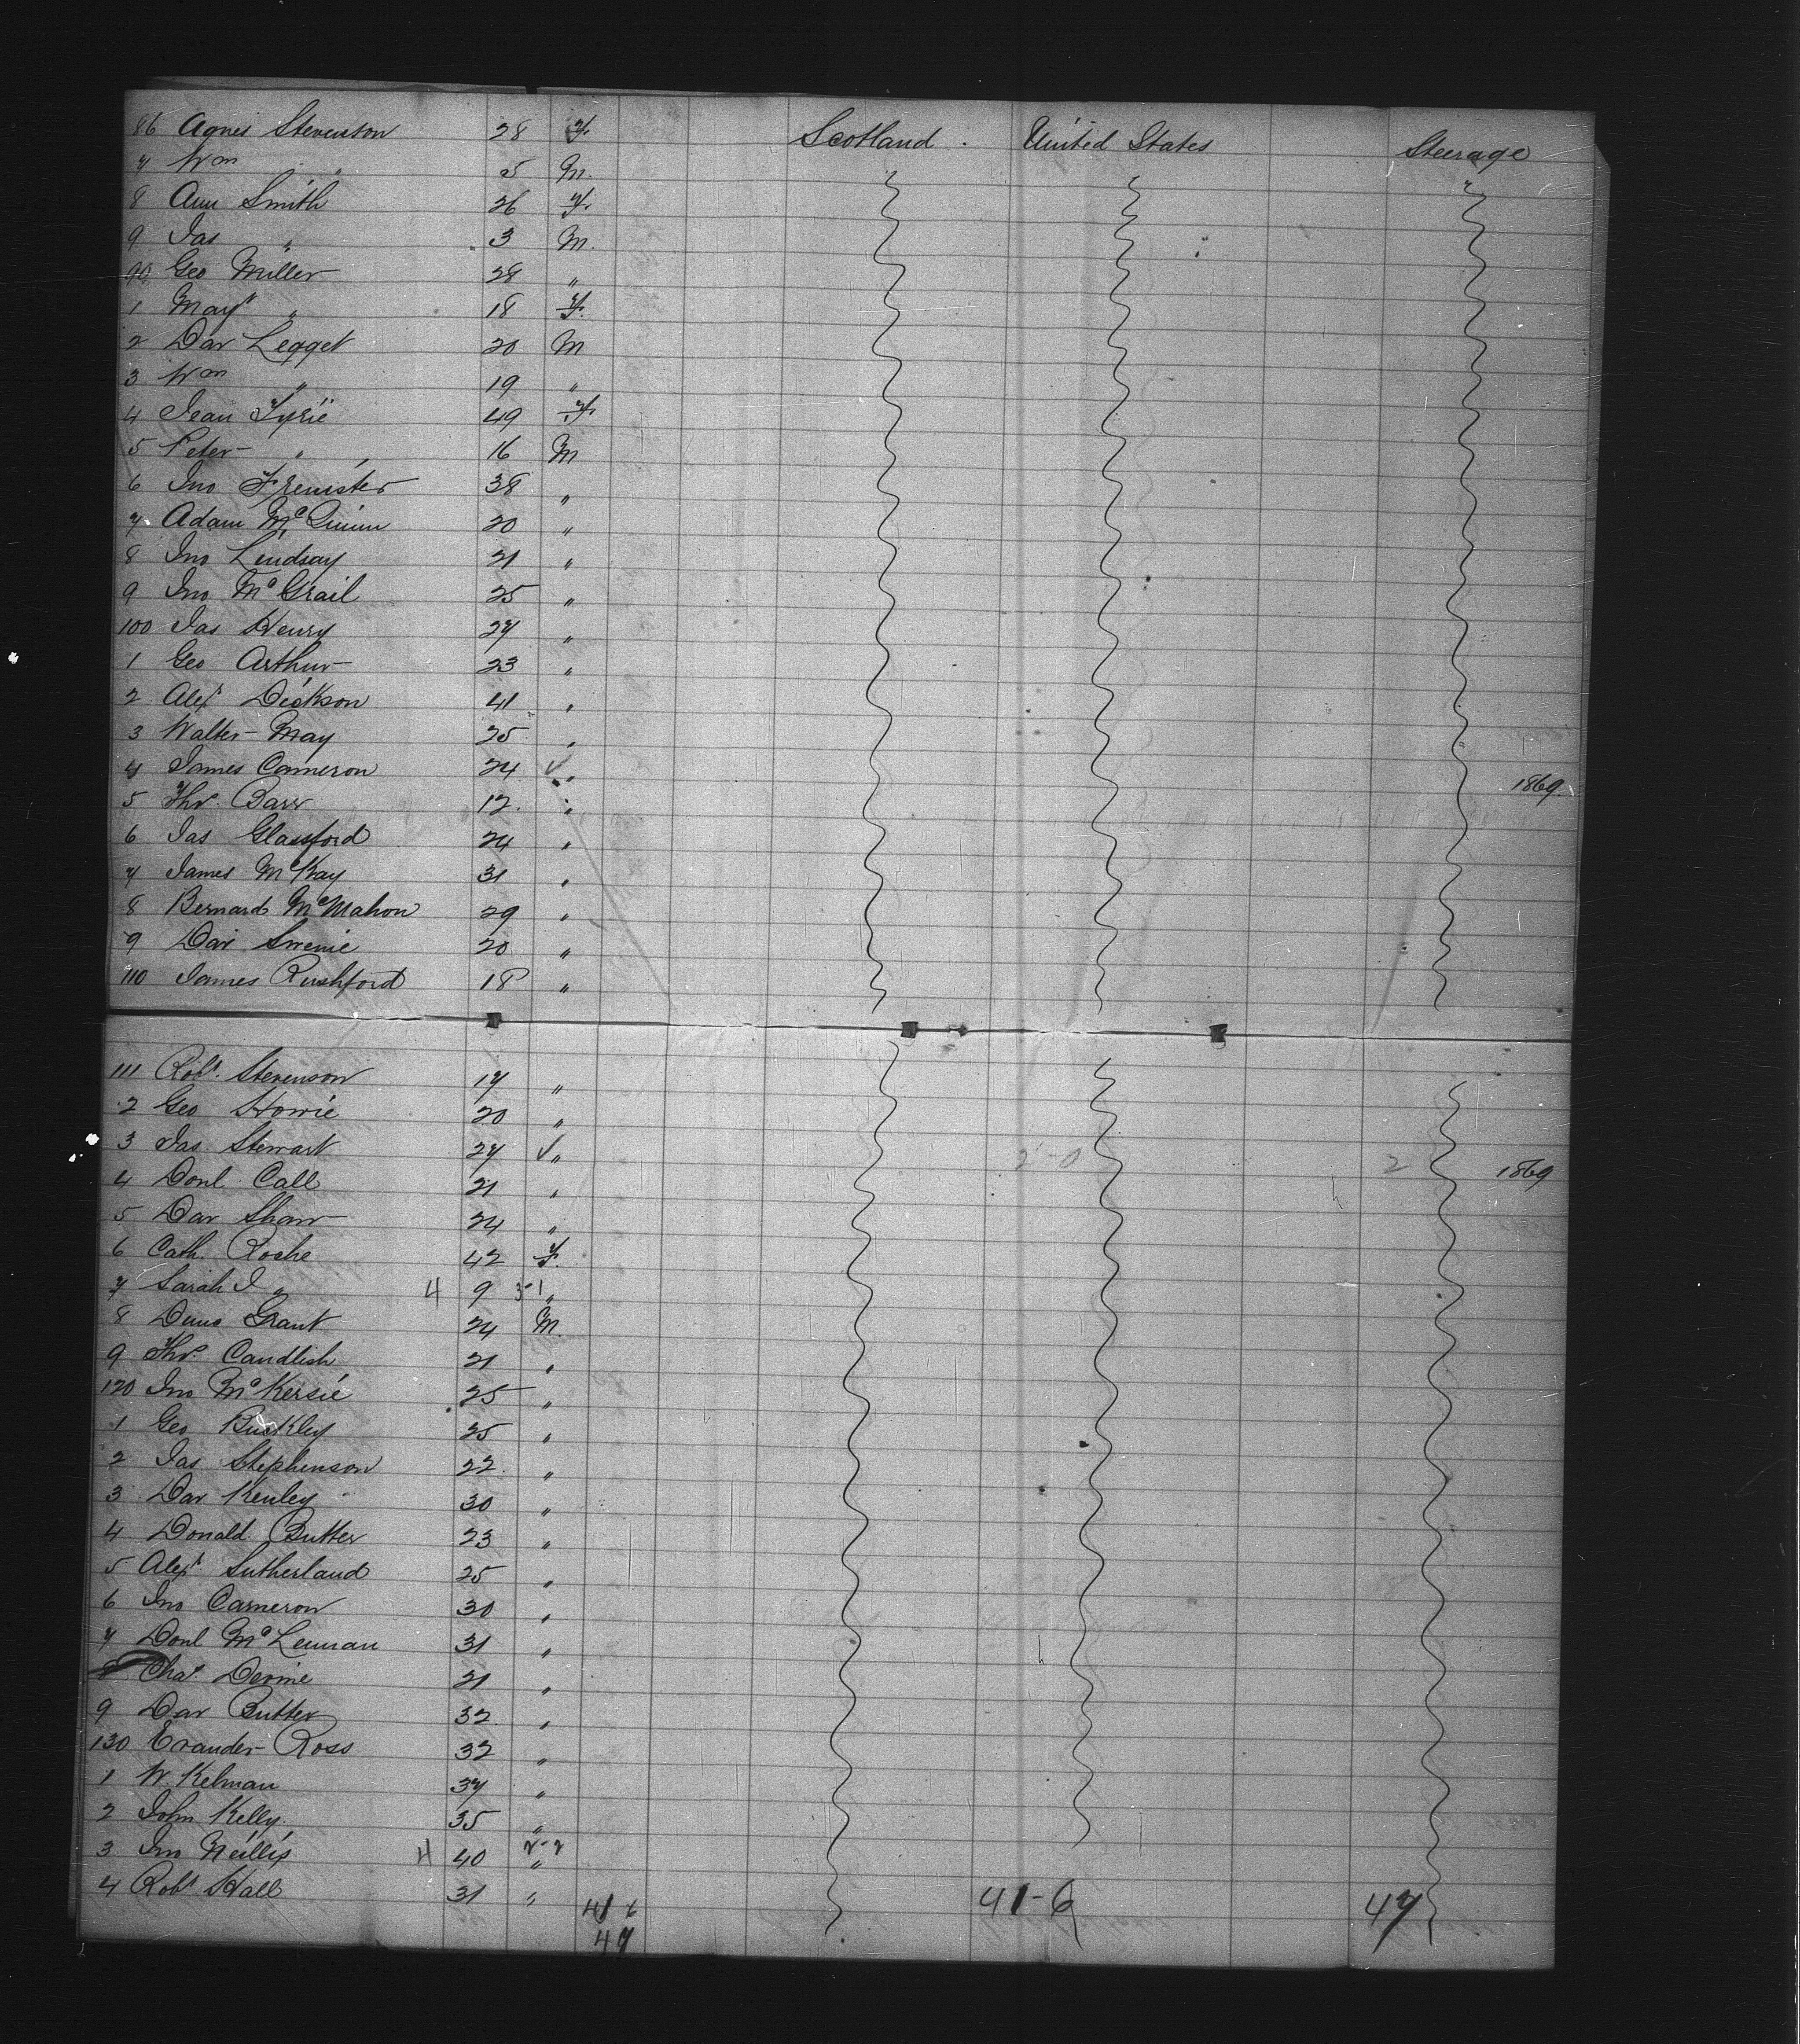 86 Agnes Stevenson 28 F. Scotland. United States Steerage
7 Wm " 5 M.
8 Ann Smith 26 F.
9 Jas " 3 M.
90 Geo Miller 28 "
1 Mayt " 18 F.
2 Dav Legget 20 M
3 Wm " 19 "
4 Jean Fyrie 49 F.
5 Peter " 16 M
6 Jno 38 "
7 Adam McQuinn 20 "
8 Jno Lindsay 21 "
9 Jno McGrail 25 "
100 Jas Henry 27 "
1 Geo Arthur 23 "
2 Alexr Dickson 41 "
3 Walter May 25 "
4 James Cameron 24 " 1869.
5 Ths. Barr 12. "
6 Jas Glassford 24 "
7 James McKay 31 "
8 Bernard McMahon 29 "
9 Dav 20 "
110 James Rushford 18 "
111 Robt. Stevenson 17 "
2 Geo Howie 20 "
3 Jas Stewart 27 " 2-0 2 1869
4 Donl Call 21 "
5 Dav Shaw 24 "
6 Cath. Roche 42 F.
7 Sarah J " 4 9 3-1 "
8 Dunc Grant 24 M.
9 Ths. Candlish 21 "
120 Jno McKersie 25 "
1 Geo Buckley 25 "
2 Jas Stephenson 22. "
3 Dav Kenley 30 "
4 Donald Butter 23 "
5 Alexr. Sutherland 25 "
6 Jno Cameron 30 "
7 Donl McLennan 31 "
8 Chas. Devine 21 "
9 Dav Butter 32. "
130 Evander Ross 32 "
1 W. Kelman 37 "
2 John Kelly. 35 "
3 Jno Neillis 4 40 2-2 "
4 Robt Hall 31 " 41 6 41-6 47
47